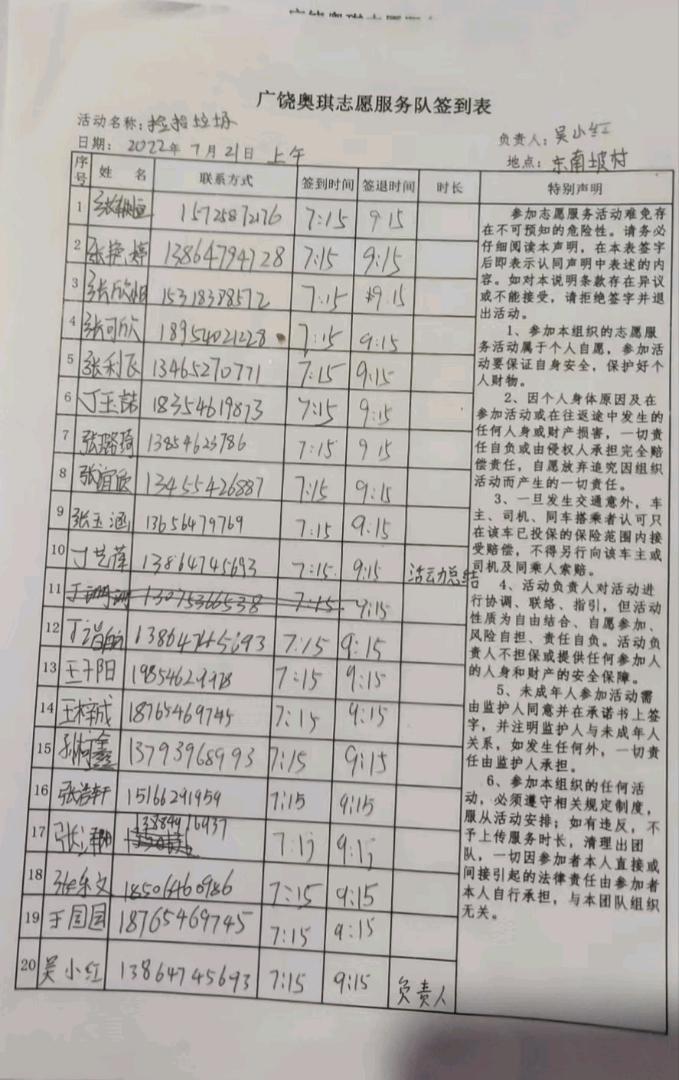 广饶奥琪志愿服务队签到表
活动名称：捡拾垃圾
负责人：吴小红
日期：2022年7月21日 上午
地点：东南坡村
序号 姓名 联系方式 签到时间 签退时间 时长 特别声明
1 15725872176 7:15 9 15
2 张艳婷 13864794728 7:15 9:15
3 张欣 15318388572 7:15 9:15
4 张可欣 18954021228 7:15 9:15
5 张利 13465270771 7:15 9:15
6 丁玉喆 18354619873 7:15 9:15
7 张璐琦 13854623786 7:15 9 15
8 张 13455426887 7:15 9:15
9 张玉涵 13656479769 7:15 9:15
10 丁艺萍 13864745693 7:15 9:15 活动总结
11 丁 13075366538 7:15 9:15
12 丁 13864745693 7:15 9:15
13 王子阳 7:15 9:15
14 王梓成 18765469745 7:15 9:15
15 孙柯鑫 13793968993 7:15 9:15
16 张浩轩 15166291959 7:15 9:15
17 张 7:15 9:15
18 张乐文 18506460986 7:15 9:15
19 王园园 18765469745 7:15 9:15
20 吴小红 13864745693 7:15 9:15 负责人
参加志愿服务活动难免存
在不可预知的危险性。请务必
仔细阅读本声明，在本表签字
后即表示认同声明中表述的内
容。如对本说明条款存在异议
或不能接受，请拒绝签字并退
出活动。
1、参加本组织的志愿服
务活动属于个人自愿，参加活
动要保证自身安全，保护好个
人财物。
2、因个人身体原因及在
参加活动或在往返途中发生的
任何人身或财产损害，一切责
任自负或由侵权人承担完全赔
偿责任，自愿放弃追究因组织
活动而产生的一切责任。
3、一旦发生交通意外，车
主、司机、同车搭乘者认可只
在该车已投保的保险范围内接
受赔偿，不得另行向该车主或
司机及同乘人索赔。
4、活动负责人对活动进
行协调、联络、指引，但活动
性质为自由结合、自愿参加、
风险自担、责任自负。活动负
责人不担保或提供任何参加人
的人身和财产的安全保障。
5、未成年人参加活动需
由监护人同意并在承诺书上签
字，并注明监护人与未成年人
关系，如发生任何外，一切责
任由监护人承担。
6、参加本组织的任何活
动，必须遵守相关规定制度，
服从活动安排；如有违反，不
予上传服务时长，清理出团
队，一切因参加者本人直接或
间接引起的法律责任由参加者
本人自行承担，与本团队组织
无关。